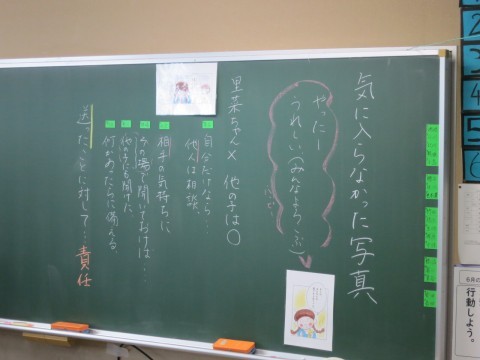 気に入らなかった写真
やったー
うれしい(みんなよろこぶ)
里菜ちゃん× 他の子は○
自分だけなら…
他人は相談、
相手の気持ちに
今の場で聞いておけば…
他の子にも聞けた
何かあったらに備える
送ったことに対して…責任
2
3
4
5
6
行動しよう。